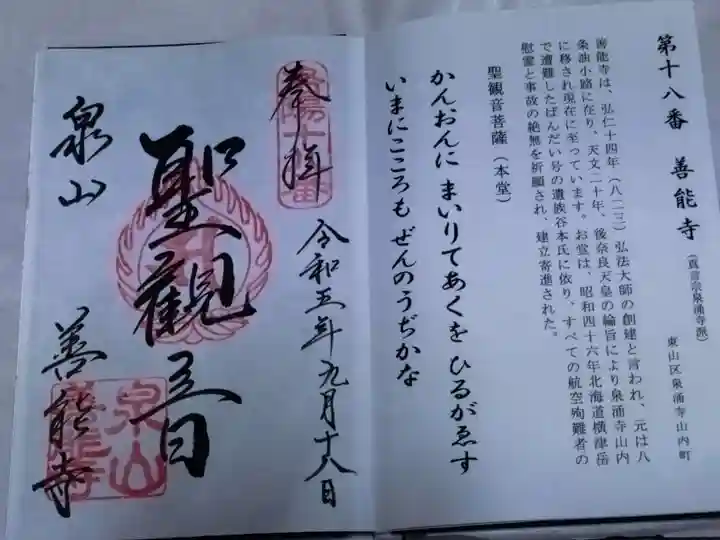 第十八番 善能寺 (真言宗泉涌寺派)
東山区泉涌寺山内町
善能寺は、弘仁十四年(八二三)弘法大師の創建と言われ、元は八
条油小路に在り、天文二十年、後奈良天皇の綸旨により泉涌寺山内
に移され現在に至っています。お堂は、昭和四十六年北海道横津岳
で遭難したばんだい号の遺族谷本氏に依り、すべての航空殉難者の
慰霊と事故の絶無を祈願され、建立寄進された。
聖観音菩薩(本堂)
かんおんに まいりてあくを ひるがゑす
いまにこころも ぜんのうぢかな
奉拝
洛陽十八番
令和五年九月十八日
聖観音
泉山
善能寺
泉山
善能寺